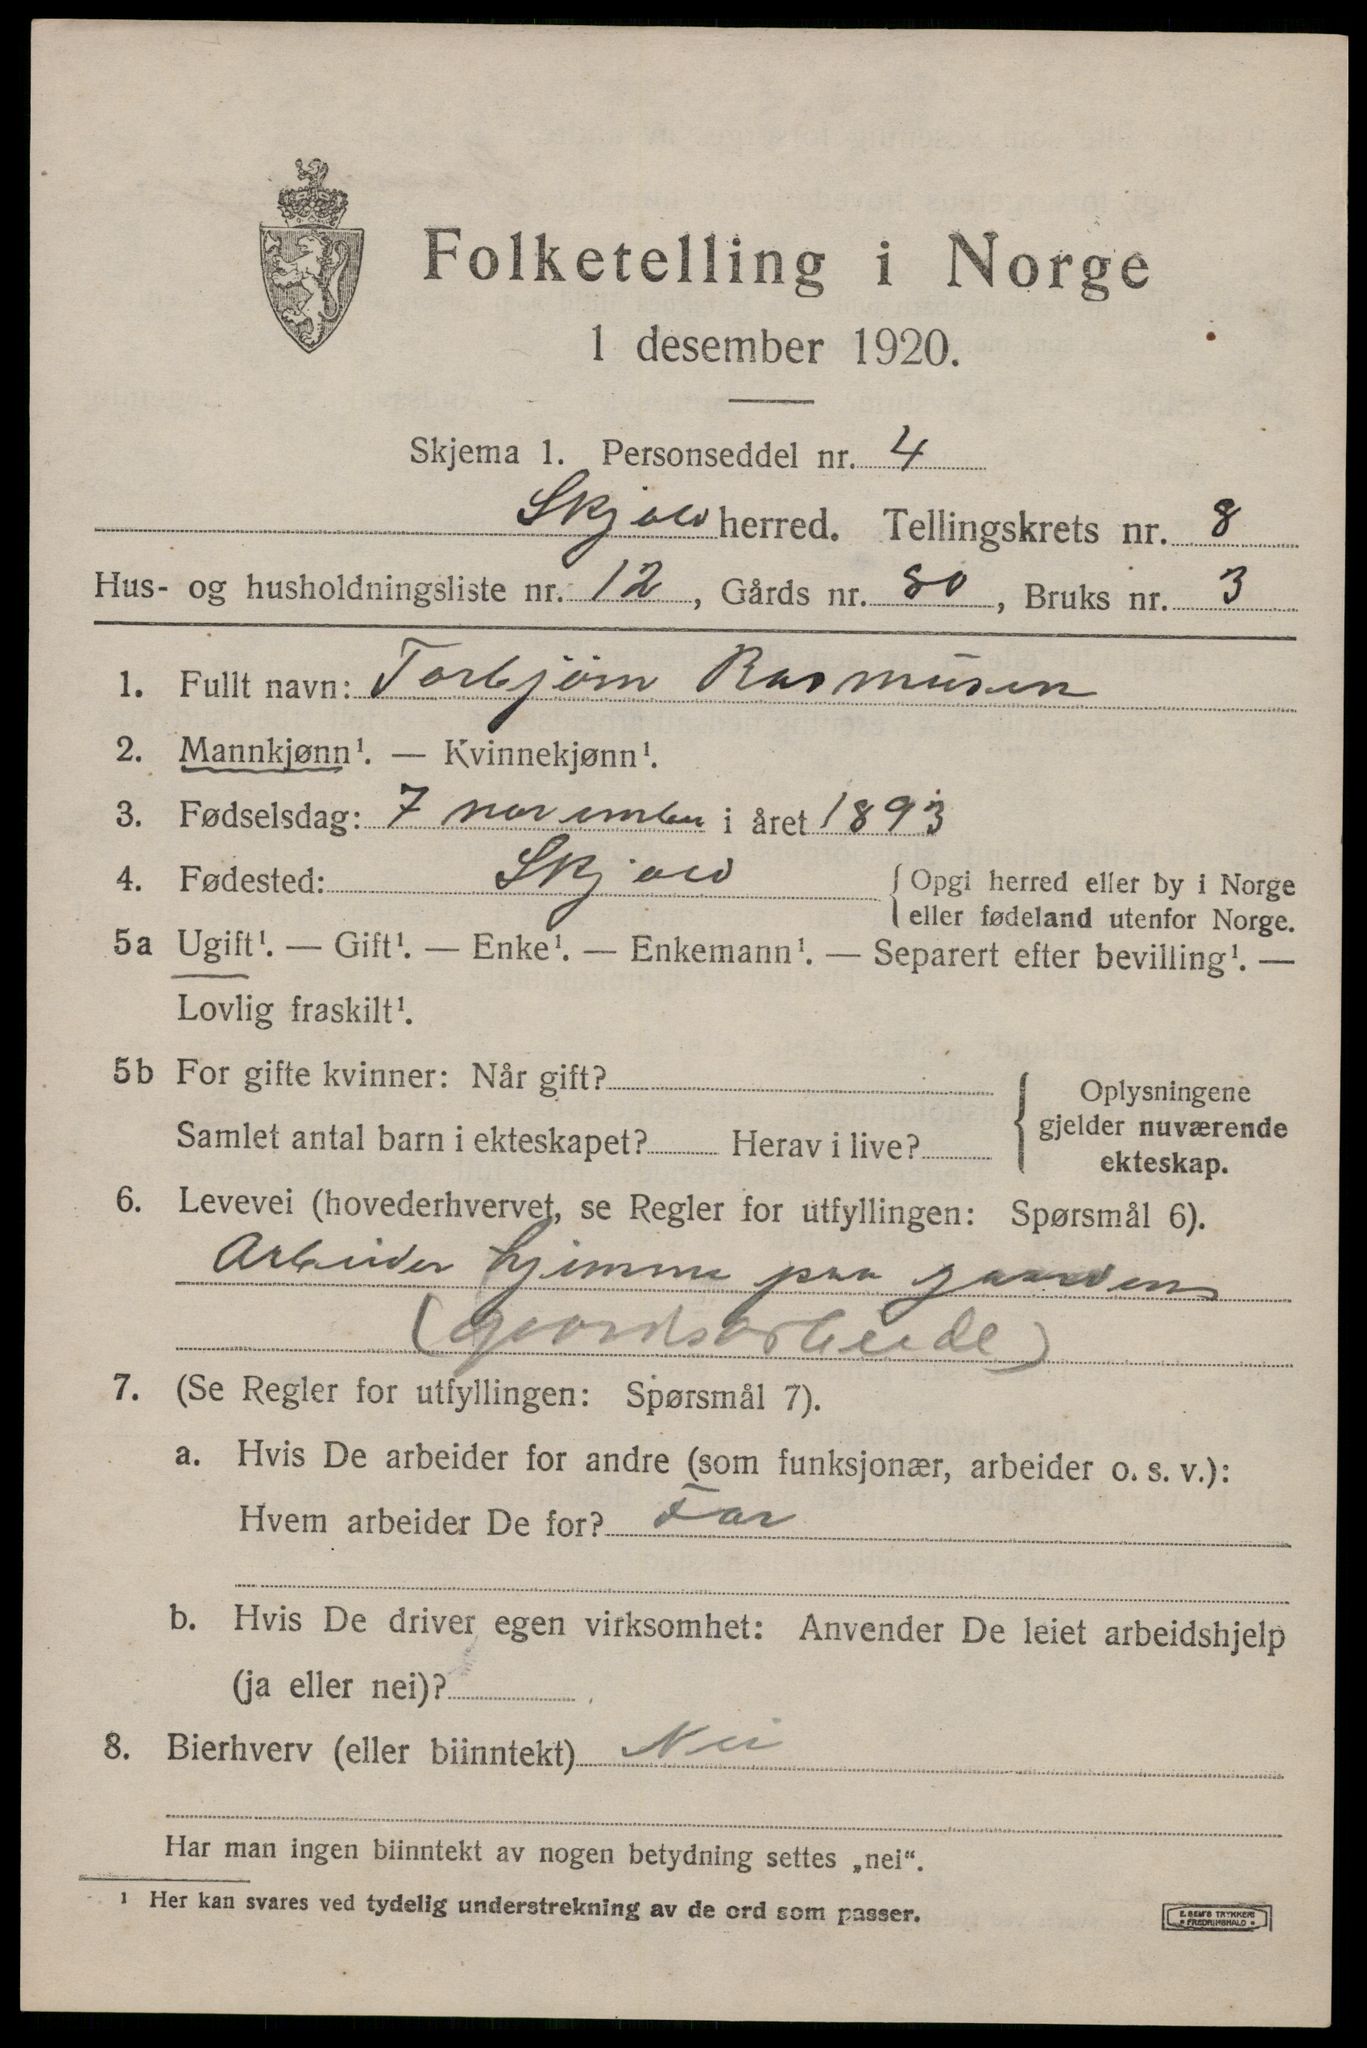 Folketelling i Norge
1 desember 1920.
Skjema 1. Personseddel nr. 4
Skjold herred. Tellingskrets nr. 8
Hus- og husholdningsliste nr. 12, Gårds nr. 80, Bruks nr. 3
1. Fullt navn: Torbjörn Rasmusen
2. Mannkjønn¹. — Kvinnekjønn¹.
3. Fødselsdag: 7 november i året 1893
4. Fødested: Skjold { Opgi herred eller by i Norge
eller fødeland utenfor Norge.
5a Ugift¹. — Gift¹. — Enke¹. — Enkemann¹. — Separert efter bevilling¹. —
Lovlig fraskilt¹.
5b For gifte kvinner: Når gift?
Samlet antal barn i ekteskapet? Herav i live?
{ Oplysningene
gjelder nuværende
ekteskap.
6. Levevei (hovederhvervet, se Regler for utfyllingen: Spørsmål 6).
Arbeider hjemme paa gaarden
(gaardsarbeide)
7. (Se Regler for utfyllingen: Spørsmål 7).
a. Hvis De arbeider for andre (som funksjonær, arbeider o. s. v.):
Hvem arbeider De for? Far
b. Hvis De driver egen virksomhet: Anvender De leiet arbeidshjelp
(ja eller nei)?
8. Bierhverv (eller biinntekt) Nei
Har man ingen biinntekt av nogen betydning settes „nei“.
¹ Her kan svares ved tydelig understrekning av de ord som passer.
E. SEM'S TRYKKERI
FREDRIKSHALD